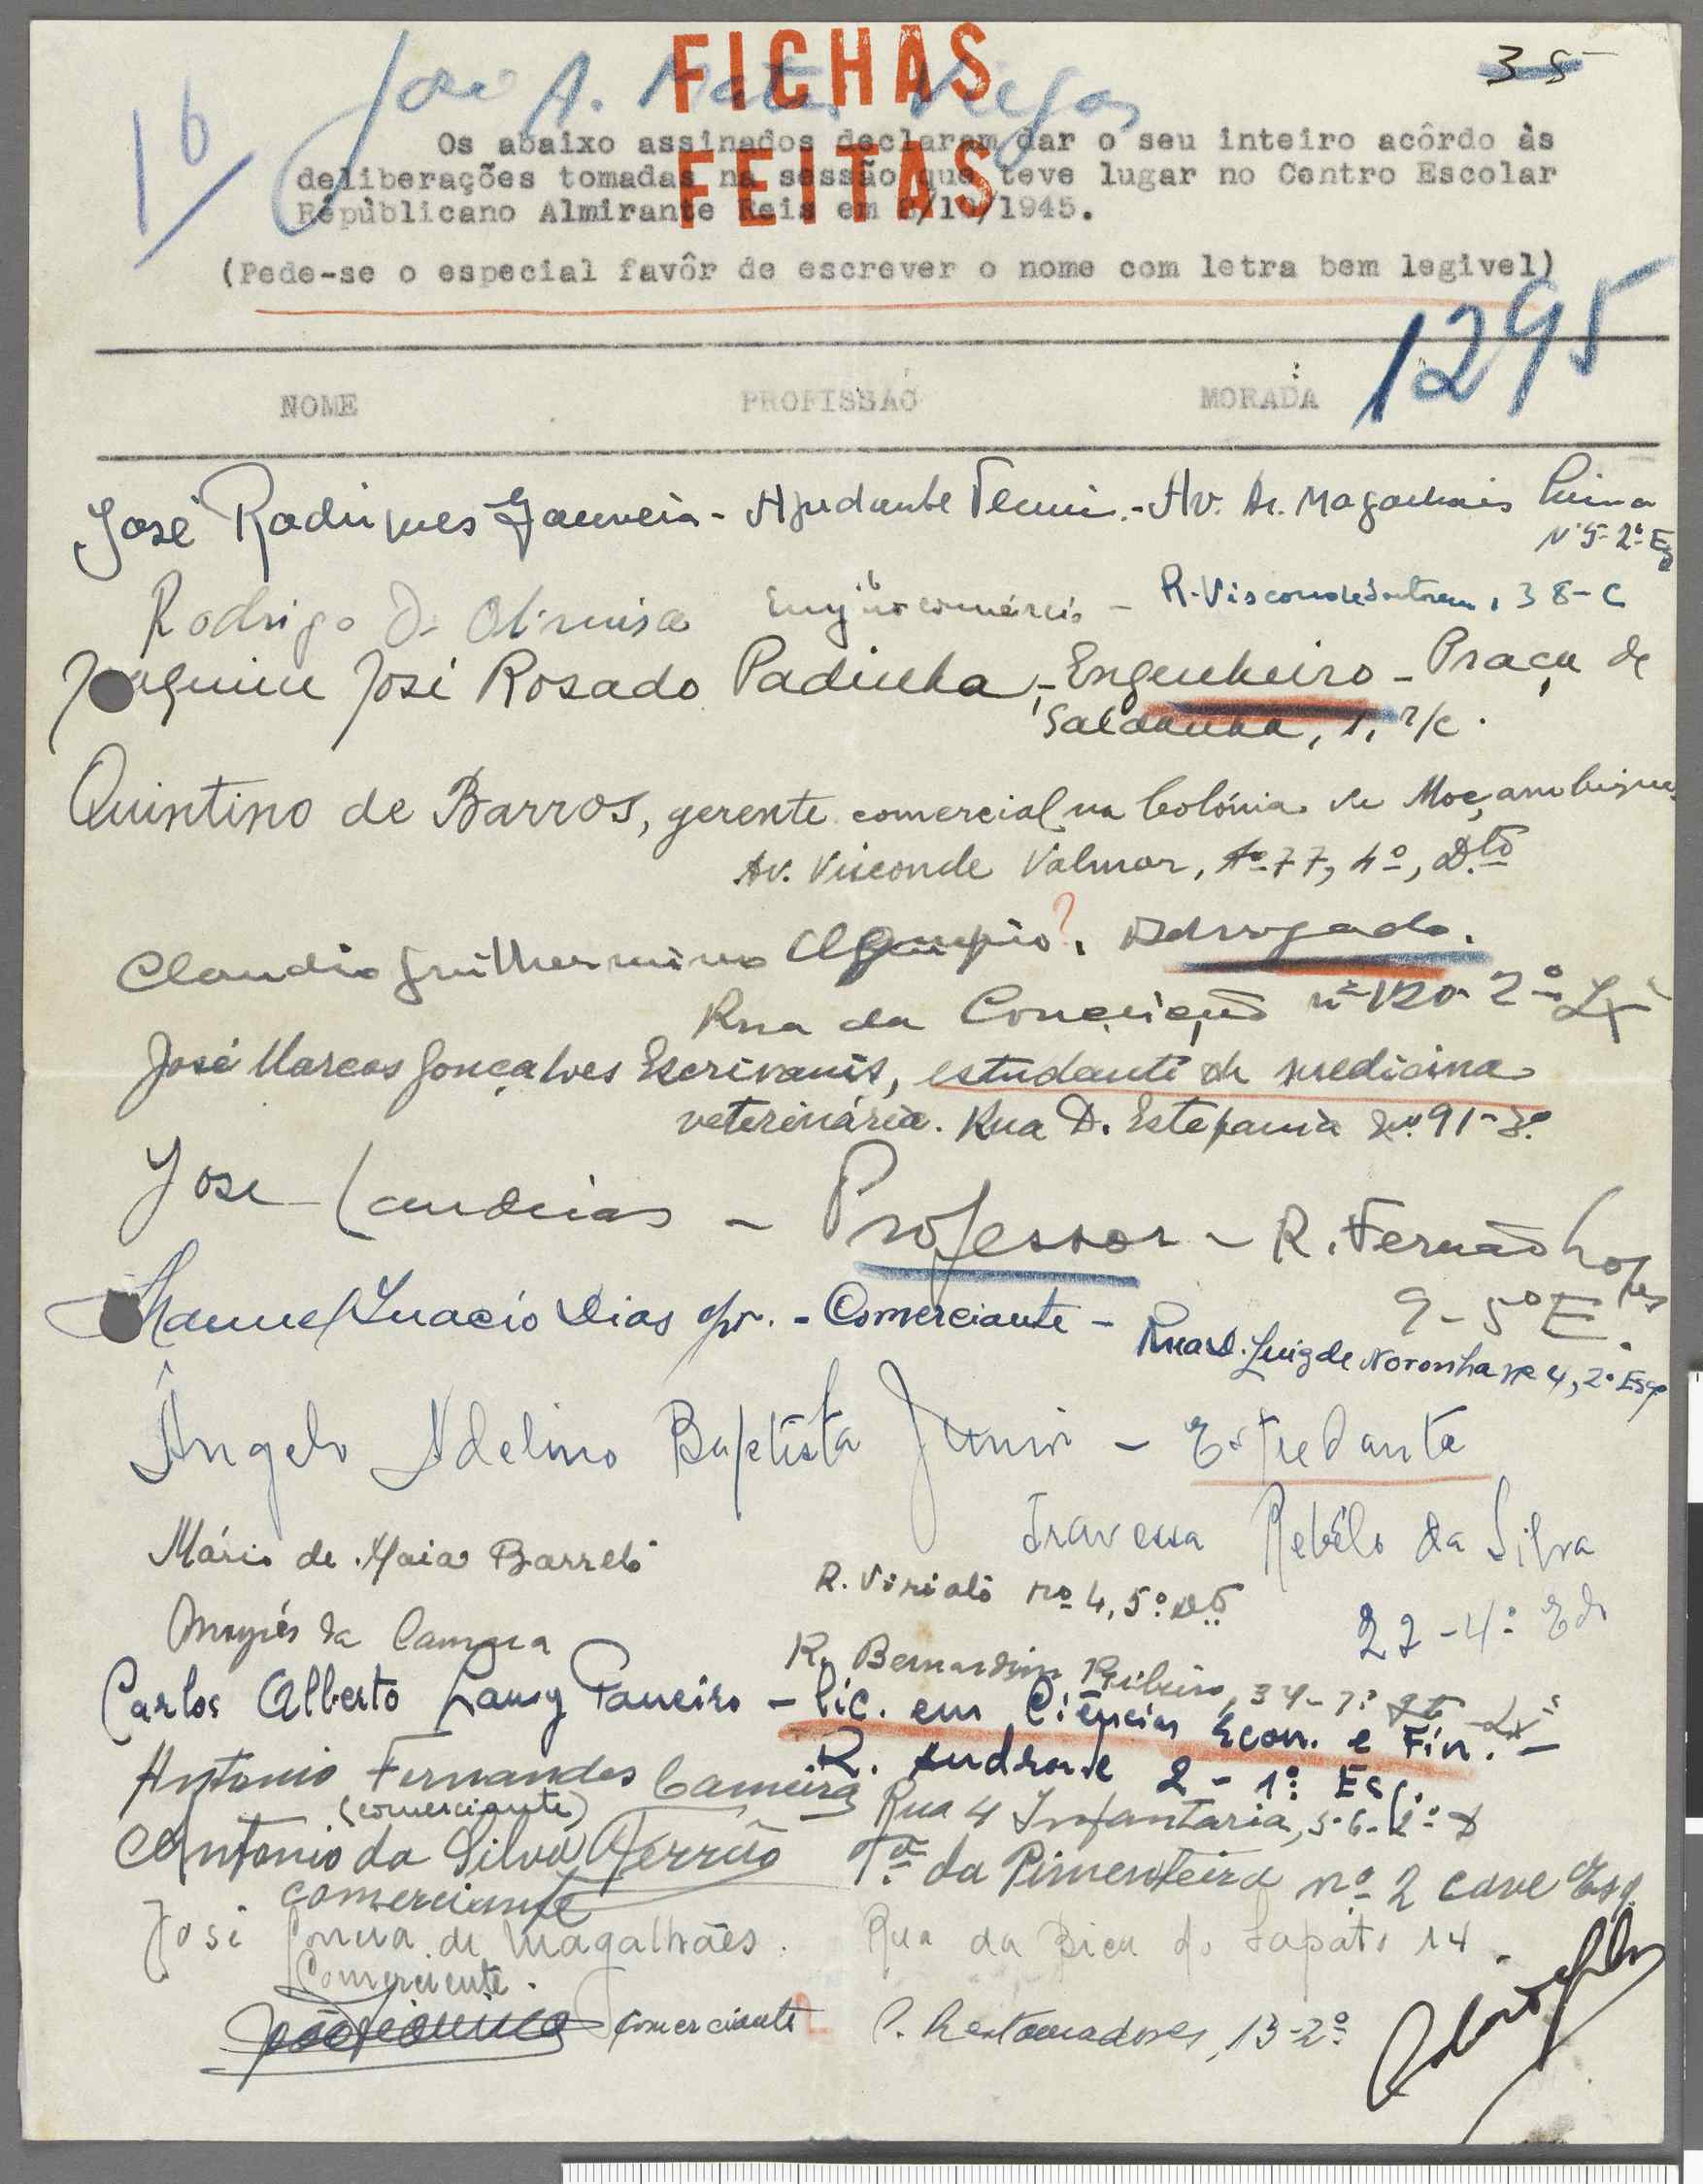 FICHAS
FEITAS
35
16
José A. Viegas
Os abaixo assinados declaram dar o seu inteiro acôrdo às
deliberações tomadas na sessão que teve lugar no Centro Escolar
Repùblicano Almirante Reis em 8/10/1945.
(Pede-se o especial favôr de escrever o nome com letra bem legivel)
1295
NOME PROFISSÃO MORADA :
José Rodrigues Gouveia - Ajudante - Av. Dr. Magalhais Lima
Nº 5-2º Esq
Rodrigo D. Oliveira comércio - R. Visconde Santarem, 38-C
Joaquim José Rosado Padinha, - Engenheiro - Praça de
Saldanha, 1, r/c.
Quintino de Barros, gerente comercial na Colónia de Moçambique,
Av. Visconde Valmor, nº 77, 4º, D.to
Claudio Guilhermino ?, Advogado.
Rua da Conceição nº 120 2º Lxª
José Marcos Gonçalves Escrivanis, estudante de medicina
veterinária. Rua D. Estefania nº 91-3º
José Candeias - Professor - R. Fernão Lopes
9-5º E.
Manuel Inacio Dias Jor. - Comerciante - Rua D. Luiz de Noronha nº 4, 2º Esqº
Ângelo Adelino Baptista Junior - Estudante
Travessa Rebêlo da Silva
22-4º Ed
Mário de Maia Barreto R. Viriato nº 4, 5º Dto
Moysés da Camara R. Bernardim Ribeiro, 34-
Carlos Alberto Lang Paneiro - Lic. em Ciências Econ. e Fin. -
R. Andrade 2-1º Esq.
Antonio Fernandes Cameira Rua 4 Infantaria, 56-2º D
(comerciante)
Antonio da Silva Ferrão Tª da Pimenteira nº 2 cave Esq.
comerciante
José Correia de Magalhães. Rua da Bica do Sapato 14.
Comerciente.
Comerciante P. Restauradores, 13-2º